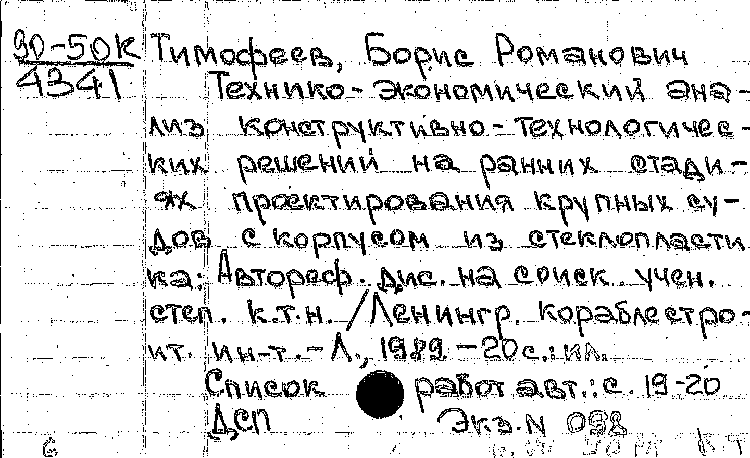 90-50к Тимофеев, Борис Романович
4341 Технико-экономический ана-
лиз конструктивно-технологичес-
ких решений на ранних стади-
ях проектирования крупных су-
дов с корпусом из стеклопласти
ка: Автореф. дис. на соиск. учен.
степ. к.т.н. / Ленингр. кораблестро-
ит. ин-т. - Л., 1989 - 20 с.: ил.
Список работ авт.: с. 19-20
ДСП Экз. N 098